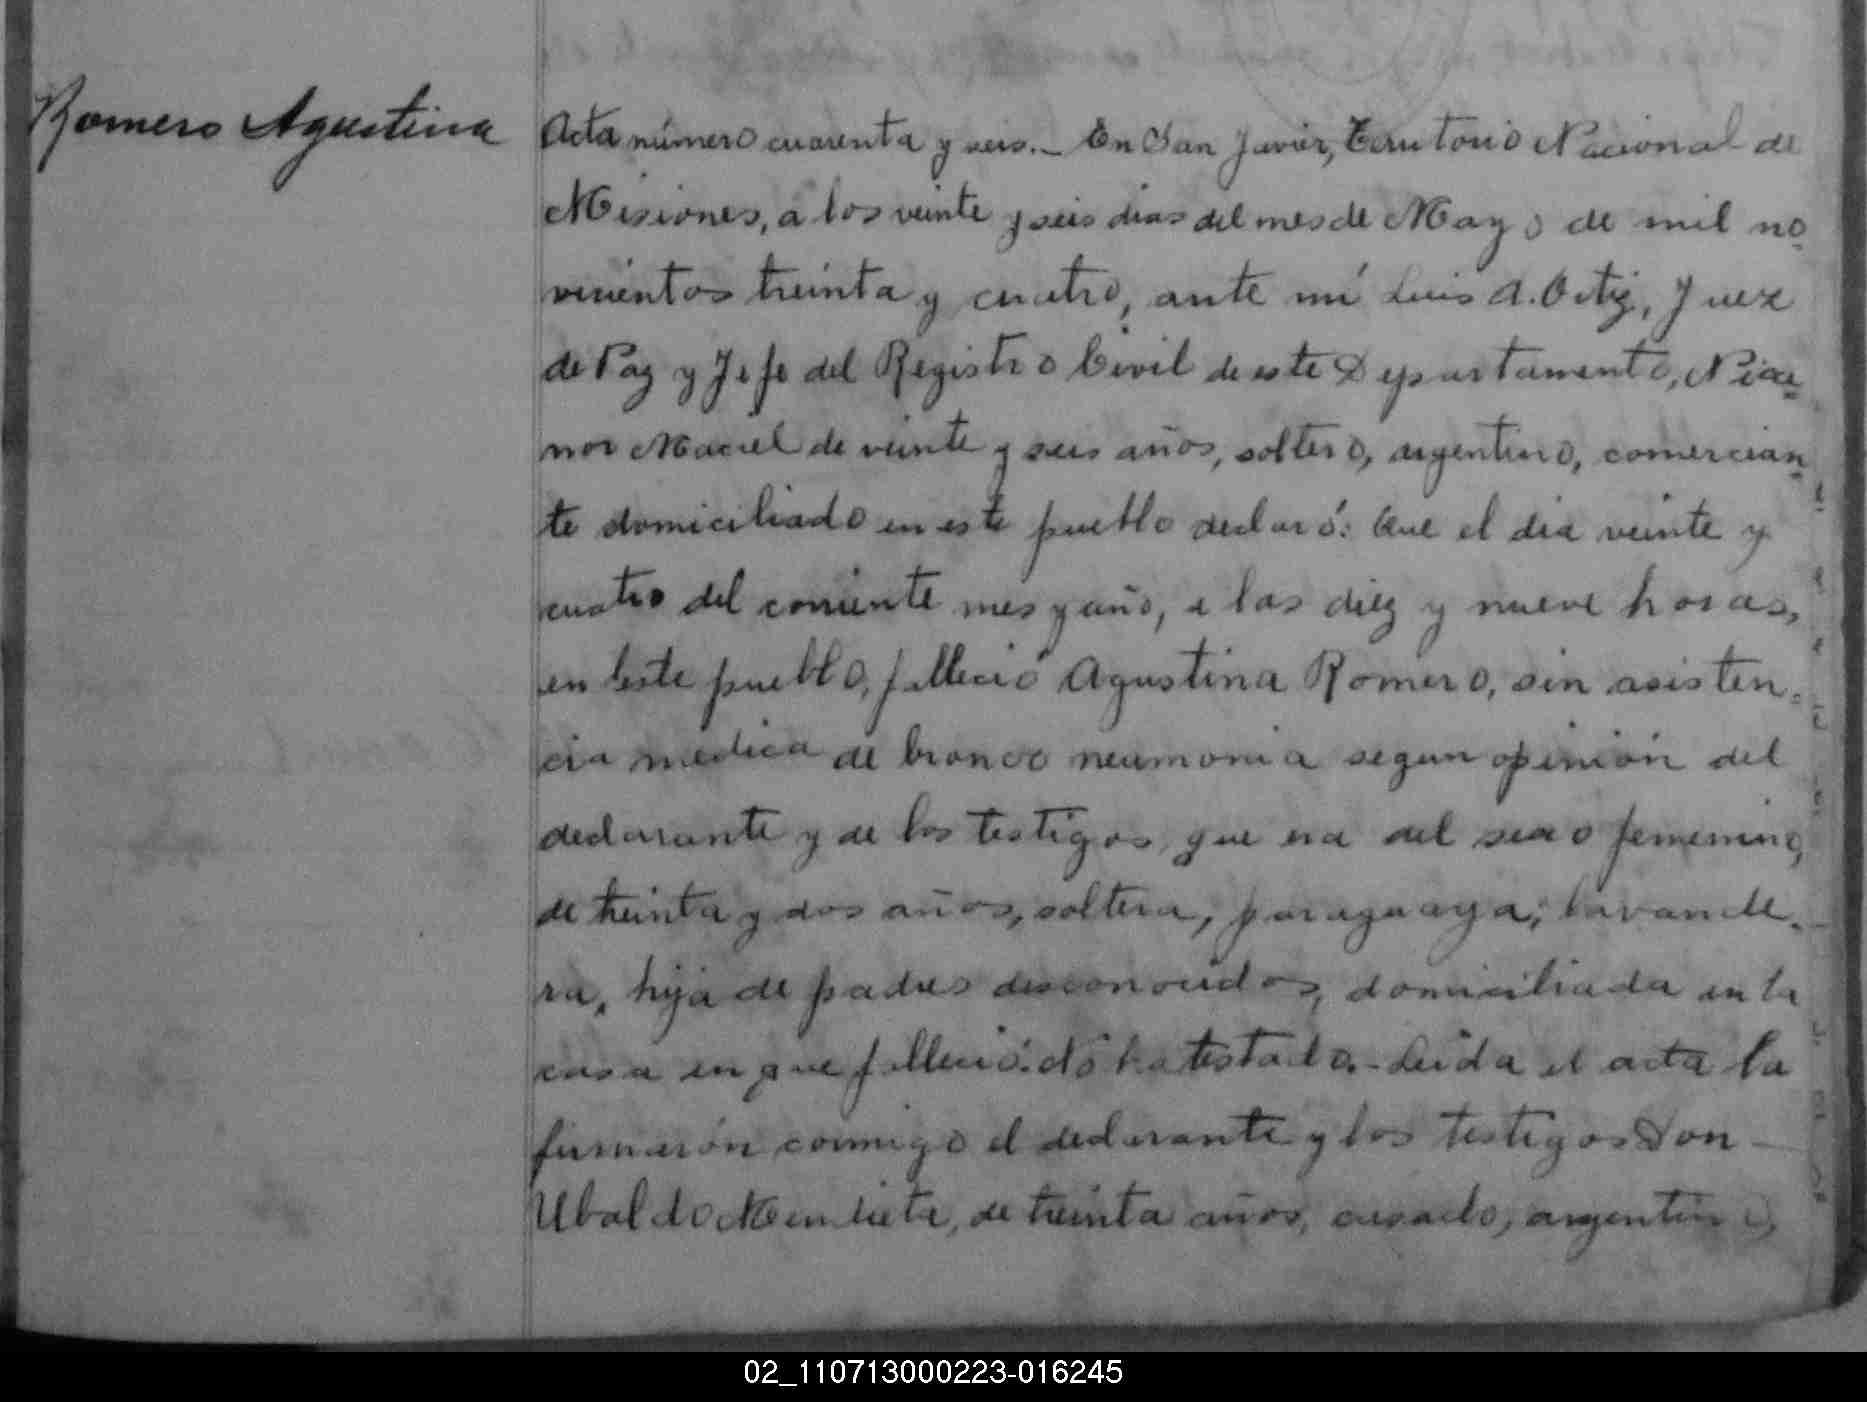 Romero Agustina
Acta número cuarenta y seis.- En San Javier, Territorio Nacional de
Misiones, a los veinte y seis dias del mes de Mayo de mil no-
vecientos treinta y cuatro, ante mí Luis A. Ortiz, Juez
de Paz y Jefe del Registro Civil de este Departamento, Nica-
nor Maciel de veinte y seis años, soltero, argentino, comercian-
te domiciliado en este pueblo declaró: Que el dia veinte y
cuatro del corriente mes y año, a las diez y nueve horas,
en este pueblo, falleció Agustina Romero, sin asisten-
cia medica de bronco neumonia segun opinión del
declarante y de los testigos, que era del sexo femenino,
de treinta y dos años, soltera, paraguaya, lavande-
ra, hija de padres desconocidos, domiciliada en la
casa en que falleció. No ha testado.- Leida el acta la
firmarón conmigo el declarante y los testigos Don
Ubaldo Mendieta, de treinta años, casado, argentino,
02_110713000223-016245